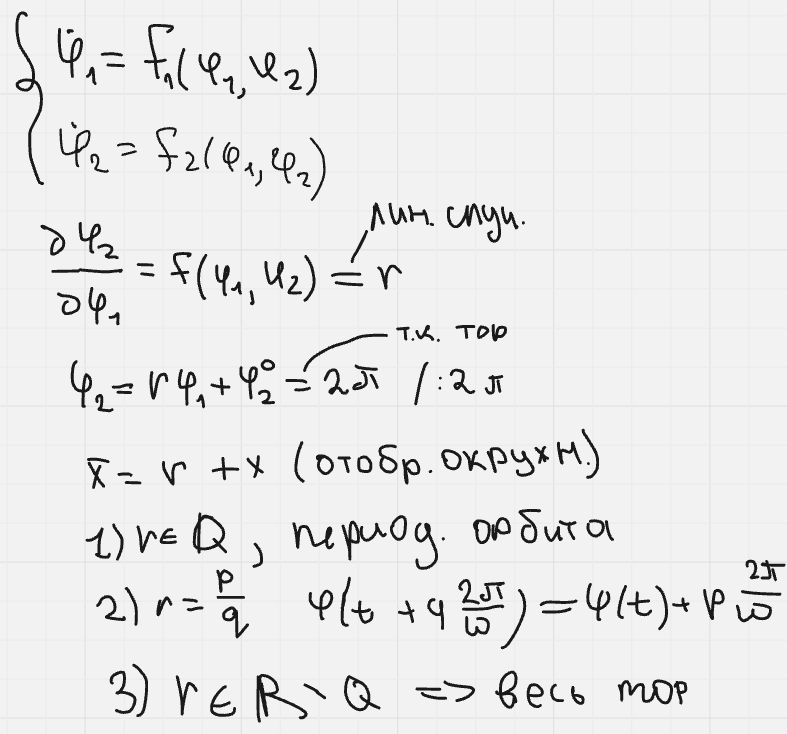 { φ̇₁ = f₁(φ₁, φ₂)
φ̇₂ = f₂(φ₁, φ₂)
лин. случ.
∂φ₂/∂φ₁ = f(φ₁, φ₂) = r
т.к. тор
φ₂ = rφ₁ + φ₂⁰ = 2π / : 2π
x̄ = r + x (отобр. окружн.)
1) r ∈ Q, период. орбита
2) r = p/q φ(t + q 2π/ω) = φ(t) + p 2π/ω
3) r ∈ R \ Q => весь тор